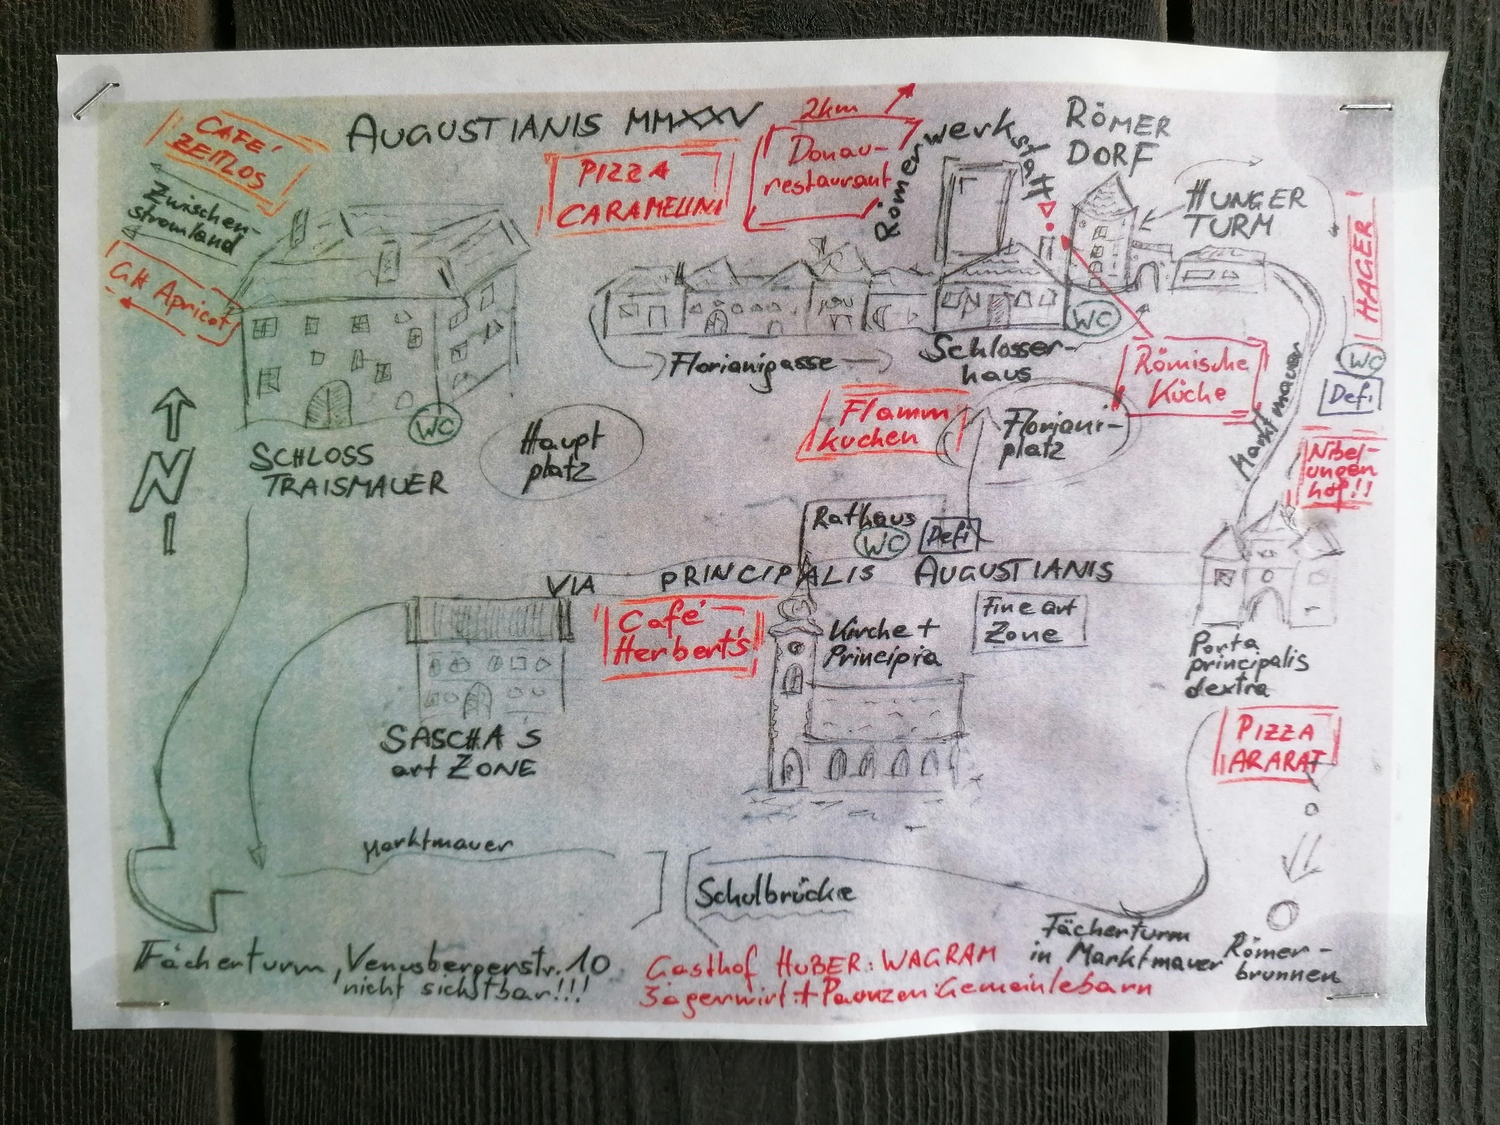 AUGUSTIANIS MMXXV
CAFÉ
ZEITLOS
Zwischen-
stromland
GH Apricot
PIZZA
CARAMELINI
2km
Donau-
restaurant
Römerwerkstatt
RÖMER
DORF
HUNGER
TURM
HAGER
WC
Defi
Nibel-
ungen
hof!!
Florianigasse
Schlosser-
haus
WC
Römische
Küche
Marktmauer
Flamm
kuchen
Floriani-
platz
WC
SCHLOSS
TRAISMAUER
Haupt
platz
N
Rathaus
WC
Defi
VIA PRINCIPALIS AUGUSTIANIS
Café
Herbert's
Kirche +
Principia
Fine art
Zone
Porta
principalis
dextra
SASCHA'S
art ZONE
PIZZA
ARARAT
Marktmauer
Schulbrücke
Fächerturm, Venusbergerstr. 10
nicht sichtbar!!!
Gasthof HUBER: WAGRAM
Gemeinlebarn
Fächerturm
in Marktmauer
Römer-
brunnen